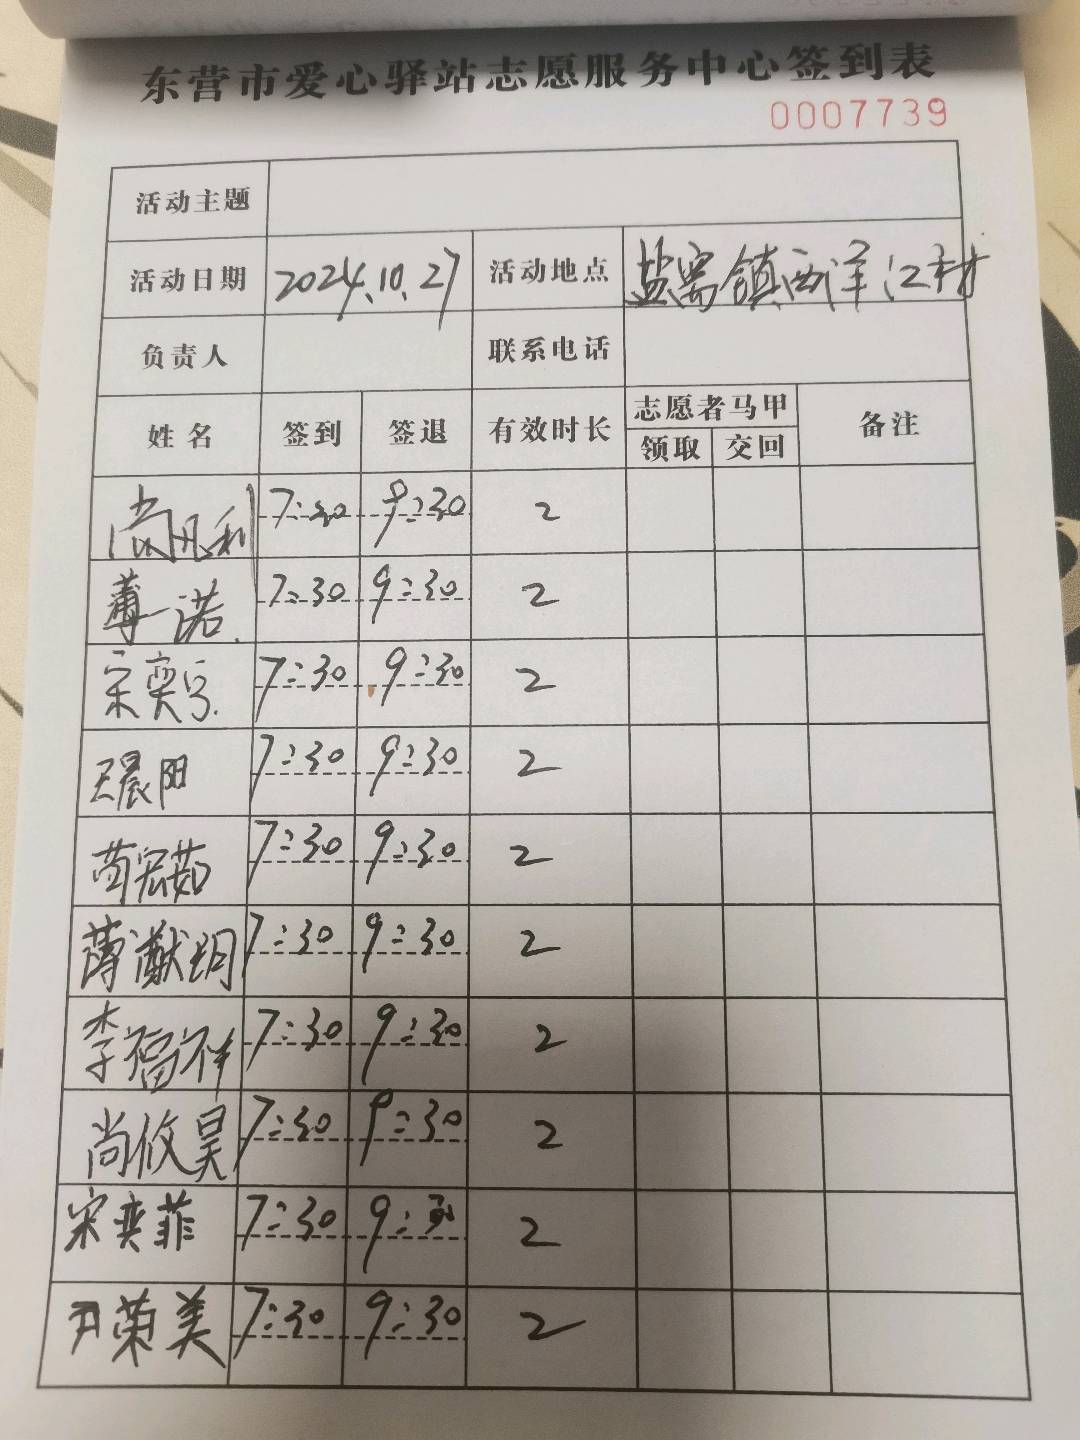 东营市爱心驿站志愿服务中心签到表
0007739
活动主题
活动日期 2024.10.27 活动地点 盐窝镇西洋江村
负责人 联系电话
姓名 签到 签退 有效时长 志愿者马甲 备注
领取 交回
尚凡利 7:30 9:30 2
薄一诺. 7:30 9:30 2
宋奕 7:30 9:30 2
王晨阳 7:30 9:30 2
苟宏茹 7:30 9:30 2
薄猷玥 7:30 9:30 2
李福祥 7:30 9:30 2
尚攸昊 7:30 9:30 2
宋奕菲 7:30 9:30 2
尹荣美 7:30 9:30 2